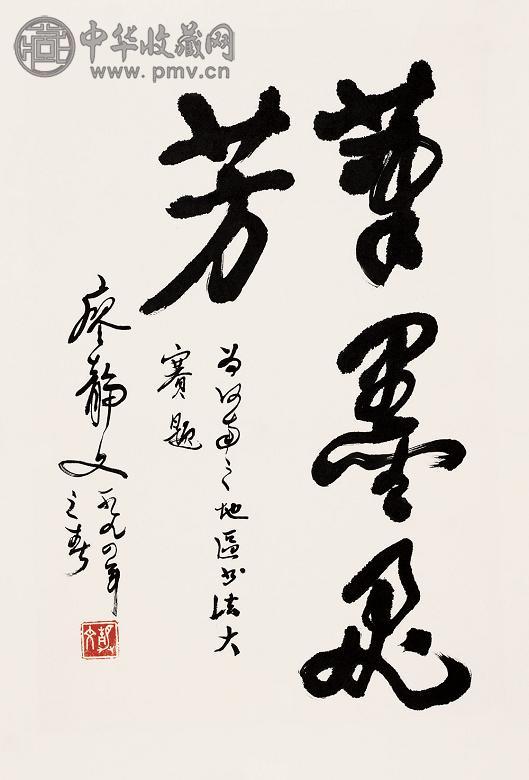 中华收藏网
www.pmv.cn
筆墨飛
芳
为河南之地區书法大
賽题
廖静文一九九四年
之春